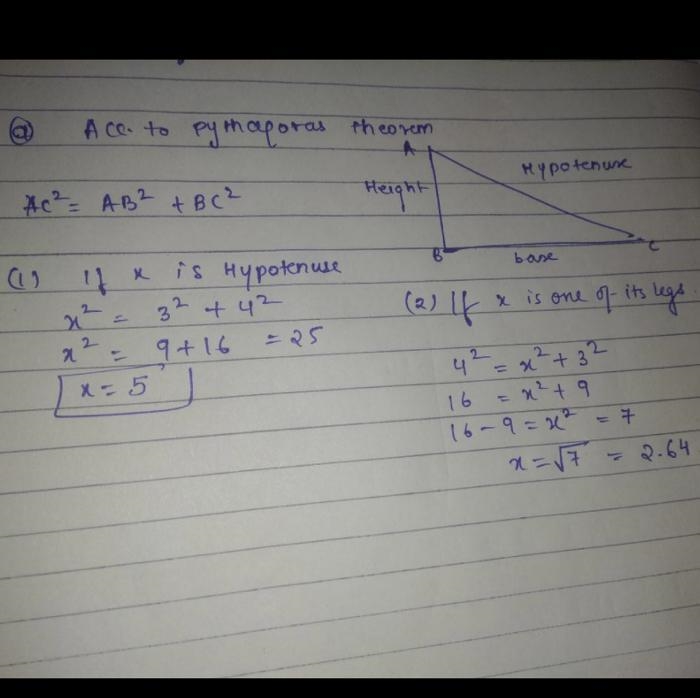 (a) Acc. to pythaporas theorem
A
Hypotenuse
Height
AC² = AB² + BC²
B
base
C
(1) If x is Hypotenuse
x² = 3² + 4²
x² = 9 + 16 = 25
x = 5
(2) If x is one of its legs.
4² = x² + 3²
16 = x² + 9
16 - 9 = x² = 7
x = √7 = 2.64